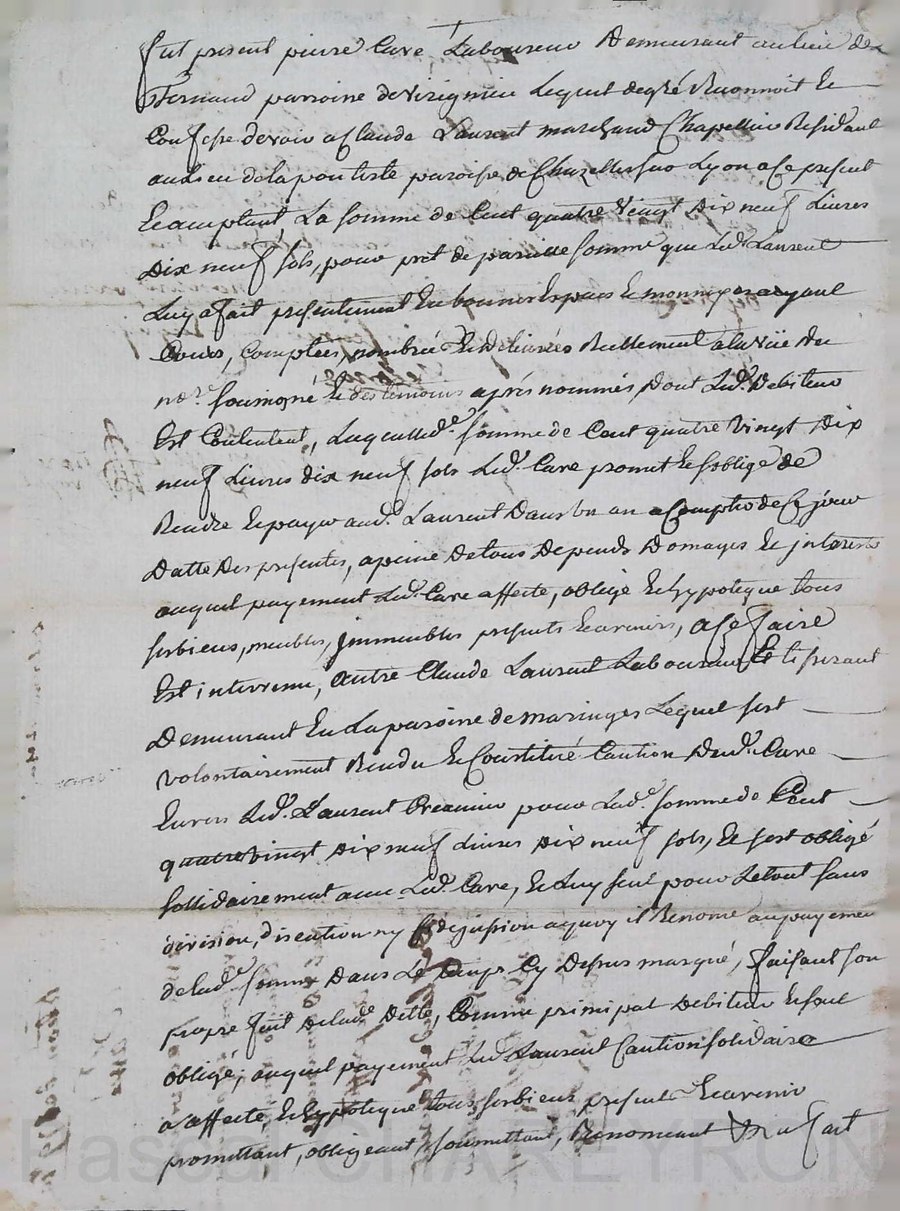 fut present pierre Care Laboureur Demeurant au lieu de
Fernaud parroisse de virigneu Lequel de gré Reconnoit Et
Confesse devoir a Claude Laurent marchand Chapellier Residant
au Lieu de la pontiste paroisse de Chazelles sur Lyon a ce present
Et acceptant La somme de Cent quatre Vingt Dix neuf Livres
Dix neuf sols, pour prêt de pareille somme que Led. Laurent
Luy a fait presentement En bonnes Especes Et monnoyes ayant
Cours, Comptées, nombrées Et Delivrées Reellement a la vüe du
nore. soussigné Et des temoins après nommés, Dont Led. Debiteur
Est Content, Laquelle de. somme de Cent quatre Vingt Dix
neuf Livres dix neuf sols Led. Care promet Et s'oblige de
Rendre Et payer aud. Laurent Dans un an a Compter de Ce jour
Datte Des presentes, a peine De tous Depends Domages Et jnterests
auquel payement Led. Care affecte, oblige Et hypoteque tous
ses biens, meubles, Jmmeubles presents Et avenirs, a Ce faire
Est intervenu, autre Claude Laurent Laboureur Et tisserant
Demeurant En La paroisse de maringes Lequel s'est
volontairement Rendu Et Constitué Caution Dud. Care
Envers Led. Laurent Creancier pour Lade. somme de Cent
quatre vingt Dix neuf Livres Dix neuf sols, Et s'est obligé
sollidairement avec Led. Care, Et Luy seul pour Le tout sans
division, discution ny fidejussion a quoy il Renonce au payement
de lade. somme Dans Le temps Cy Dessus marqué, faisant son
propre fait De lade. Dette, Comme principal Debiteur Et seul
obligé; auquel payement Led. Laurent Caution solidaire
a affecté, Et hypoteque tous ses biens presents Et avenir
promettant, obligeant soumettant, Renonceant
Pascal CHAREYRON